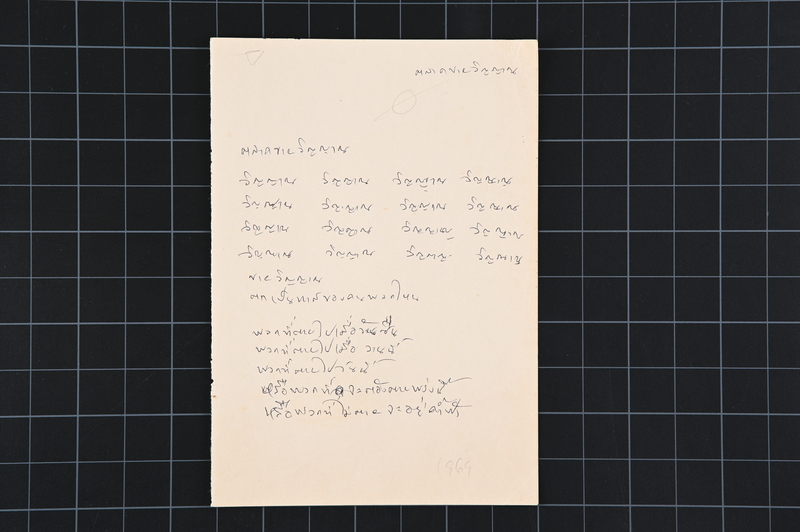 ตลาดขายวิญญาณ
ตลาดขายวิญญาณ
วิญญาณ วิญญาณ วิญญาณ วิญญาณ
วิญญาณ วิญญาณ วิญญาณ วิญญาณ
วิญญาณ วิญญาณ วิญญาณ วิญญาณ
วิญญาณ วิญญาณ วิญญาณ วิญญาณ
ขายวิญญาณ
ตกเป็นทาสของคนพวกไหน
พวกที่ตายไปเมื่อวันซืน
พวกที่ตายไปเมื่อวานนี้
พวกที่ตายไปวันนี้
หรือพวกที่จะต้องตายพรุ่งนี้
หรือพวกที่ไม่ตายจะอยู่ค้ำฟ้า
1969